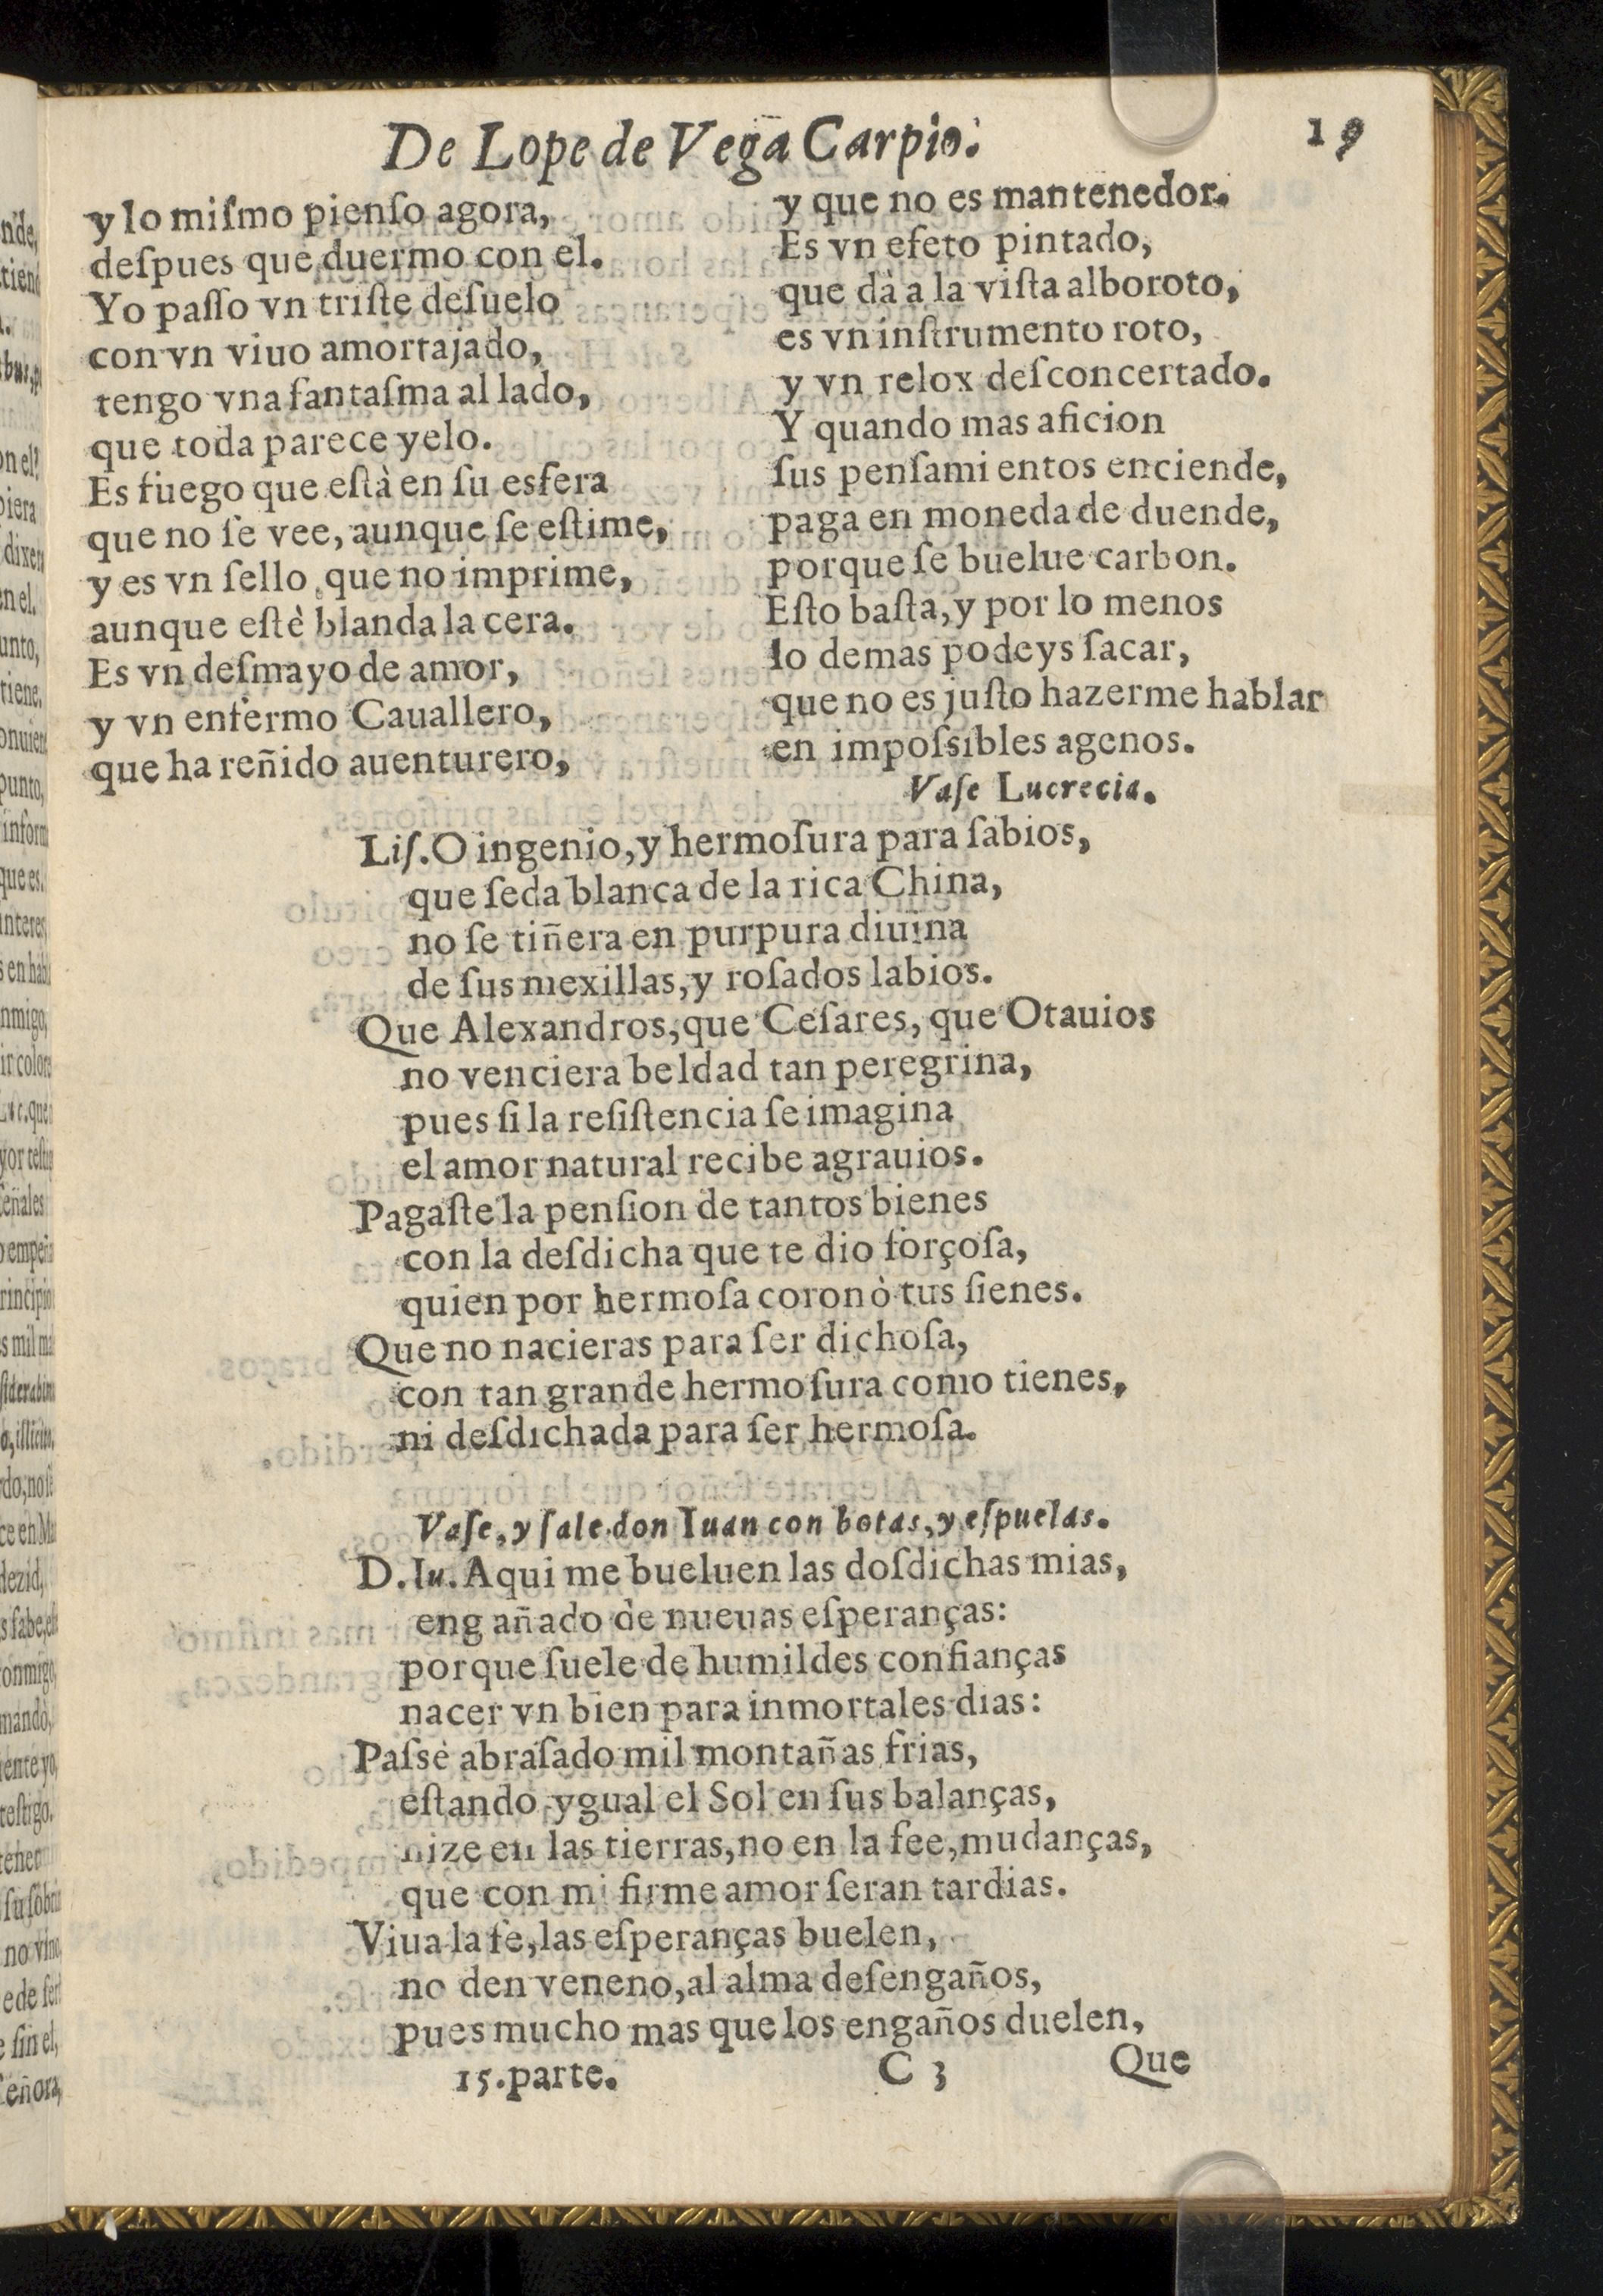 De Lope de Vega Carpio. 19
y lo miſmo pienſo agora,
deſpues que duermo con el.
Yo paſſo vn triſte deſuelo
con vn viuo amortajado,
tengo vna fantaſma al lado,
que toda parece yelo.
Es fuego que eſtà en ſu esfera
que no ſe vee, aunque ſe eſtime,
y es vn ſello, que no imprime,
aunque eſtè blanda la cera.
Es vn deſmayo de amor,
y vn enfermo Cauallero,
que ha reñido auenturero,
y que no es mantenedor.
Es vn efeto pintado,
que dà a la viſta alboroto,
es vn inſtrumento roto,
y vn relox deſconcertado.
Y quando mas aficion
ſus penſami entos enciende,
paga en moneda de duende,
porque ſe buelue carbon.
Eſto baſta, y por lo menos
lo demas podeys ſacar,
que no es juſto hazerme hablar
en impoſsibles agenos.
Vaſe Lucrecia.
Liſ. O ingenio, y hermoſura para ſabios,
que ſeda blanca de la rica China,
no ſe tiñera en purpura diuina
de ſus mexillas, y roſados labios.
Que Alexandros, que Ceſares, que Otauios
no venciera beldad tan peregrina,
pues ſi la reſiſtencia ſe imagina
el amor natural recibe agrauios.
Pagaſte la penſion de tantos bienes
con la deſdicha que te dio forçoſa,
quien por hermoſa coronò tus ſienes.
Que no nacieras para ſer dichoſa,
con tan grande hermoſura como tienes,
ni deſdichada para ſer hermoſa.
Vaſe, y ſale don Iuan con botas, y eſpuelas.
D. Iu. Aqui me bueluen las doſdichas mias,
eng añado de nueuas eſperanças:
porque ſuele de humildes confianças
nacer vn bien para inmortales dias:
Paſsè abraſado mil montañas frias,
eſtando ygual el Sol en ſus balanças,
hize en las tierras, no en la fee, mudanças,
que con mi firme amor ſeran tardias.
Viua la fe, las eſperanças buelen,
no den veneno, al alma deſengaños,
pues mucho mas que los engaños duelen,
15. parte. C 3 Que